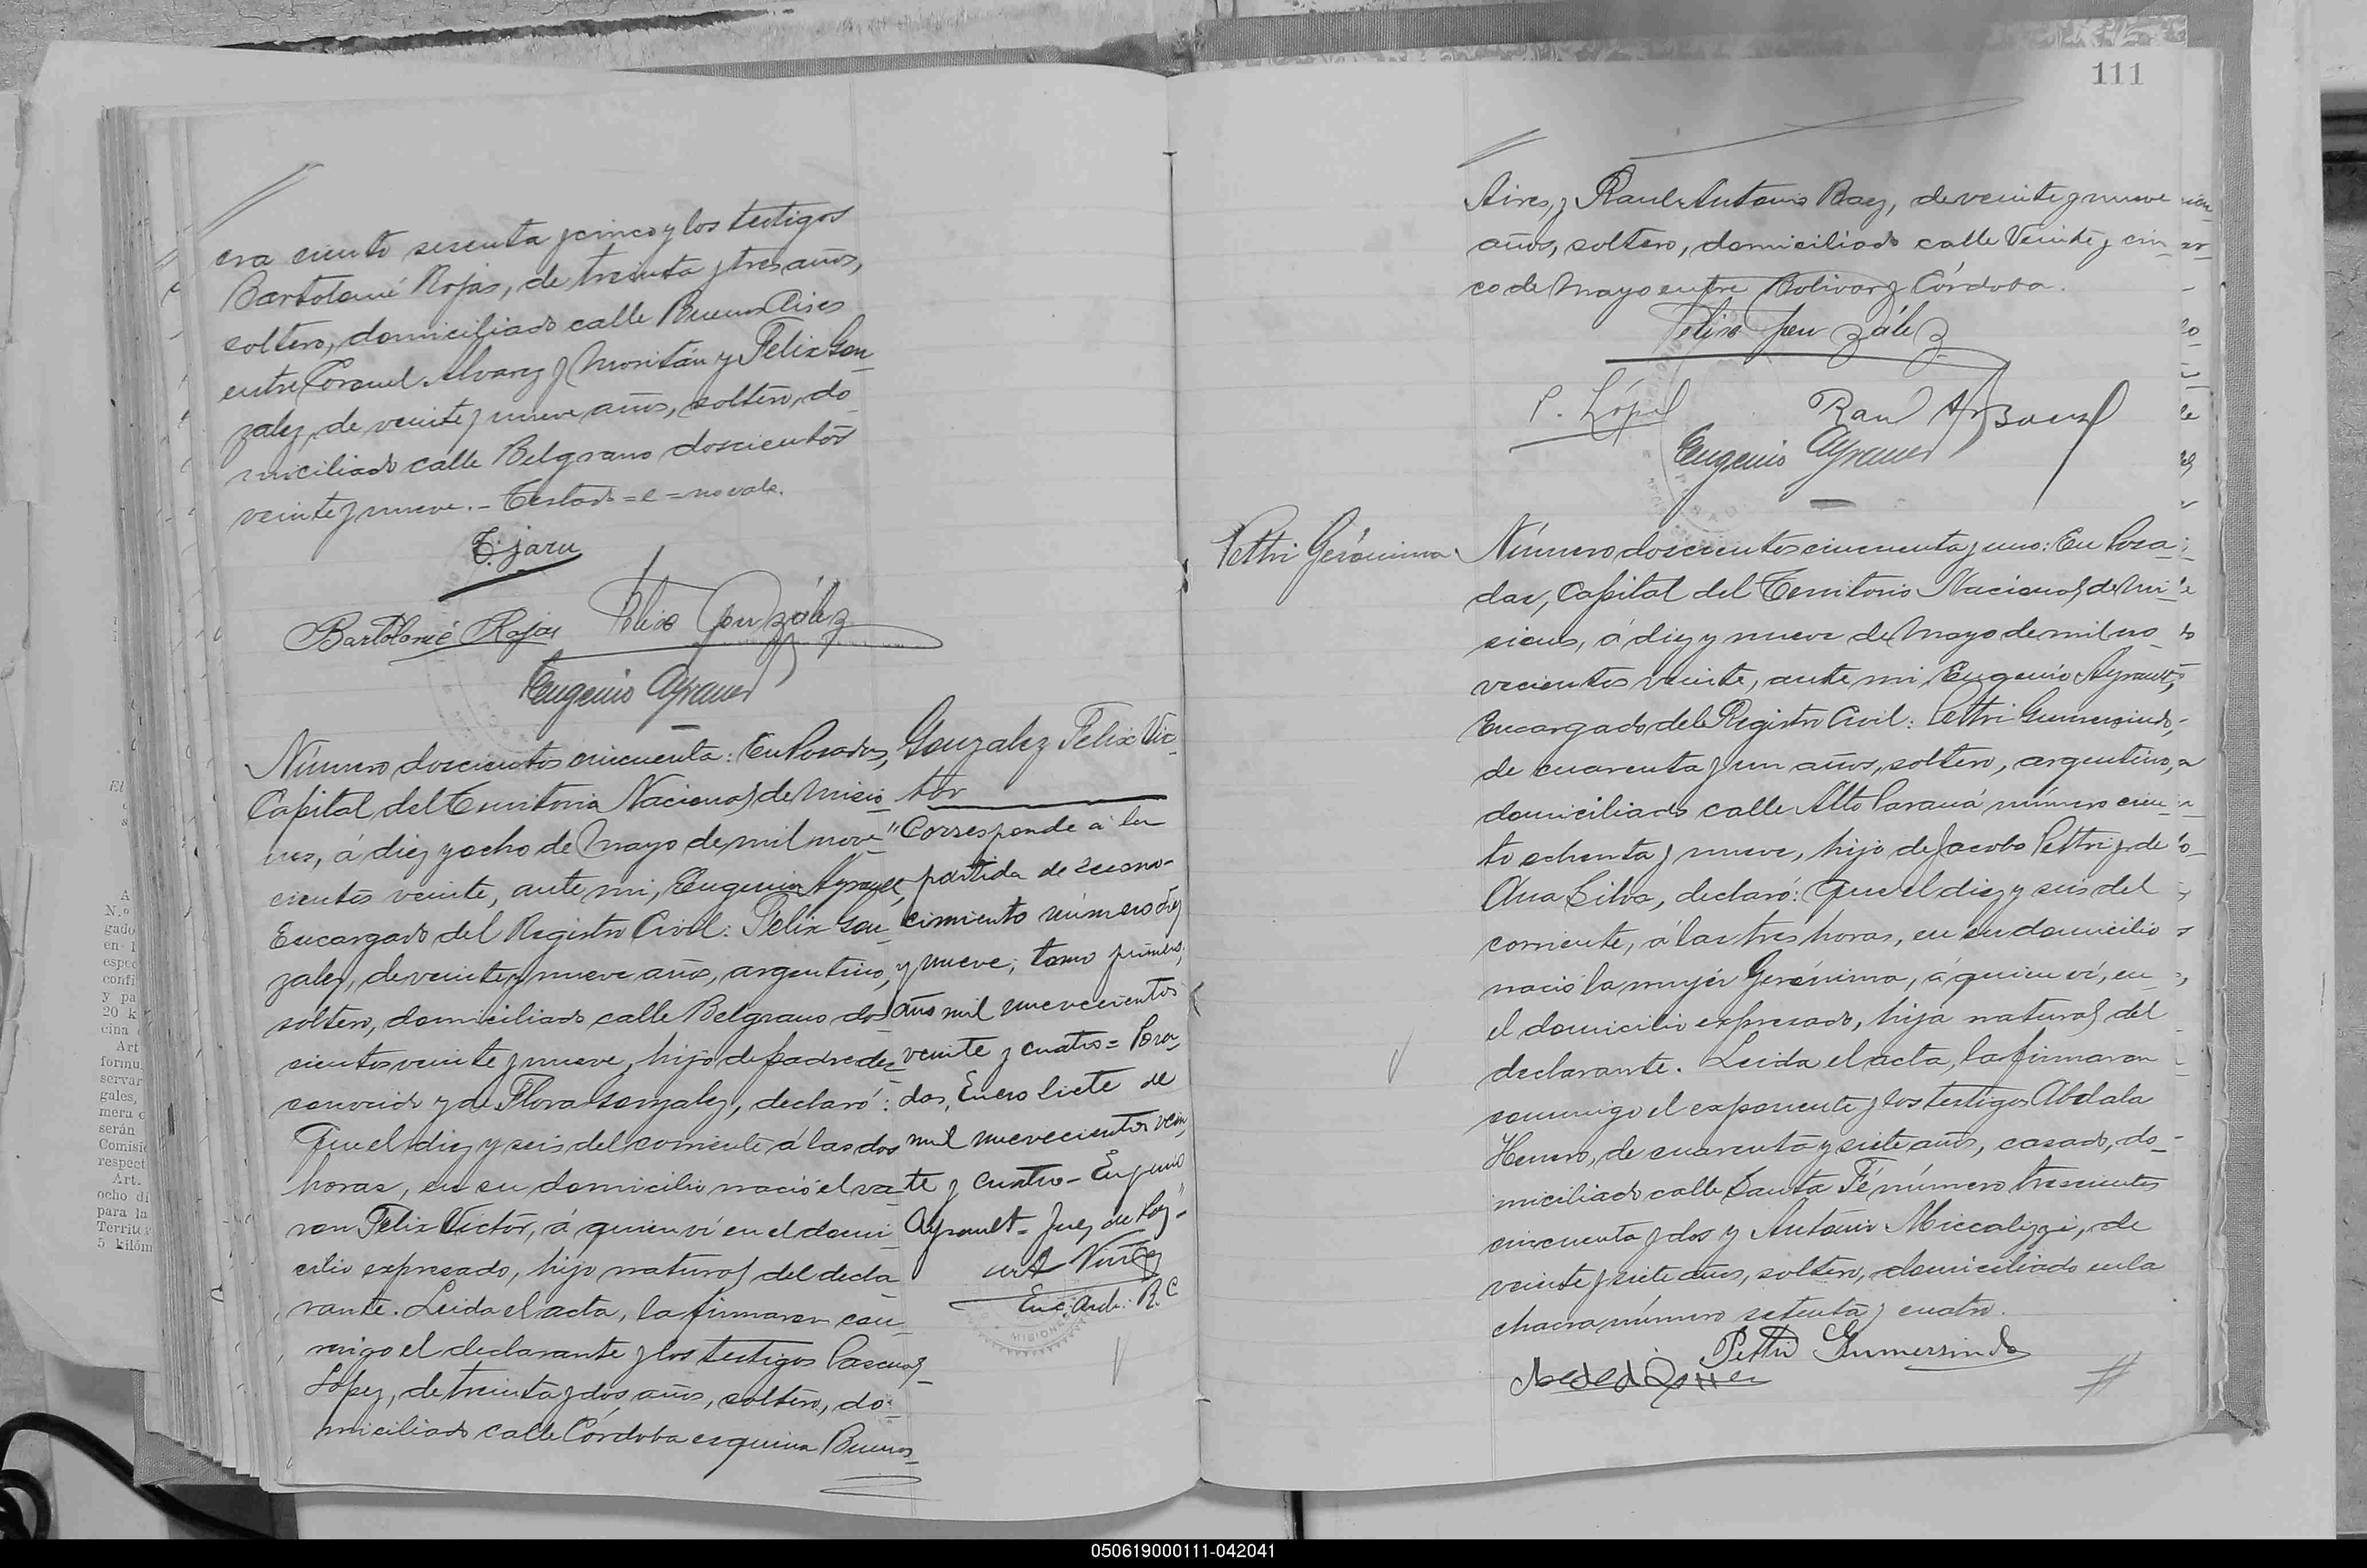 era ciento sesenta y cinco y los testigos
Bartolomé Rojas, de treinta y tres años,
soltero, domiciliado calle Buenos Aires
entre Coronel Alvarez y Moritán y Felix Gon
zalez, de veinte y nueve años, soltero, do
miciliado calle Belgrano doscientos
veinte y nueve.- Testado = e = no vale.
Bartolomé Rojas Felix González
Eugenio Ayrault
Número doscientos cincuenta: En Posadas,
Capital del Territorio Nacional de Misio
nes, á diez y ocho de Mayo de mil nove
cientos veinte, ante mi, Eugenio Ayrault,
Encargado del Registro Civil: Felix Gon
zalez, de veinte y nueve años, argentino,
soltero, domiciliado calle Belgrano dos
cientos veinte y nueve, hijo de padre des
conocido y de Flora Gonzalez, declaró:
Que el diez y seis del corriente á las dos
horas, en su domicilio nació el va
ron Felix Victor, á quien ví en el domi
cilio expresado, hijo natural del decla
rante. Leida el acta, la firmaron con
migo el declarante y los testigos Pascual
Lopez, de treinta y dos años, soltero, do
miciliado calle Córdoba esquina Buenos
Gonzalez Felix Vic
tor
"Corresponde á la
partida de recono-
cimiento número diez
y nueve, tomo primero,
año mil nuevecientos
veinte y cuatro = Posa
das, Enero siete de
mil nuevecientos vein
te y cuatro - Eugenio
Ayrault - Juez de Paz"
Enc. Arch. R. C
MISIONES
111
Aires, y Raul Antonio Baez, de veinte y nueve
años, soltero, domiciliado calle Veinte y cin
co de Mayo entre Bolivar y Córdoba.
Felix González
P. López Raul A. Baez
Eugenio Ayrault
Pettri Gerónima
Número doscientos cincuenta y uno: En Posa
das, Capital del Territorio Nacional de Mi
siones, á diez y nueve de Mayo de mil no
vecientos veinte, ante mi, Eugenio Ayrault,
Encargado del Registro Civil: Pettri Gumersindo,
de cuarenta y un años, soltero, argentino,
domiciliado calle Alto Paraná número cien
to ochenta y nueve, hijo de Jacobo Pettri y de
Ana Silva, declaró: Que el diez y seis del
corriente, á las tres horas, en su domicilio
nació la mujer Gerónima, á quien ví, en
el domicilio expresado, hija natural del
declarante. Leida el acta, la firmaron
conmigo el exponente y los testigos Abdala
de cuarenta y siete años, casado, do-
miciliado calle Santa Fé número trescientos
cincuenta y dos y Antonio Miccalizzi, de
veinte y siete años, soltero, domiciliado en la
chacra número setenta y cuatro.
Pettri Gumersindo
050619000111-042041